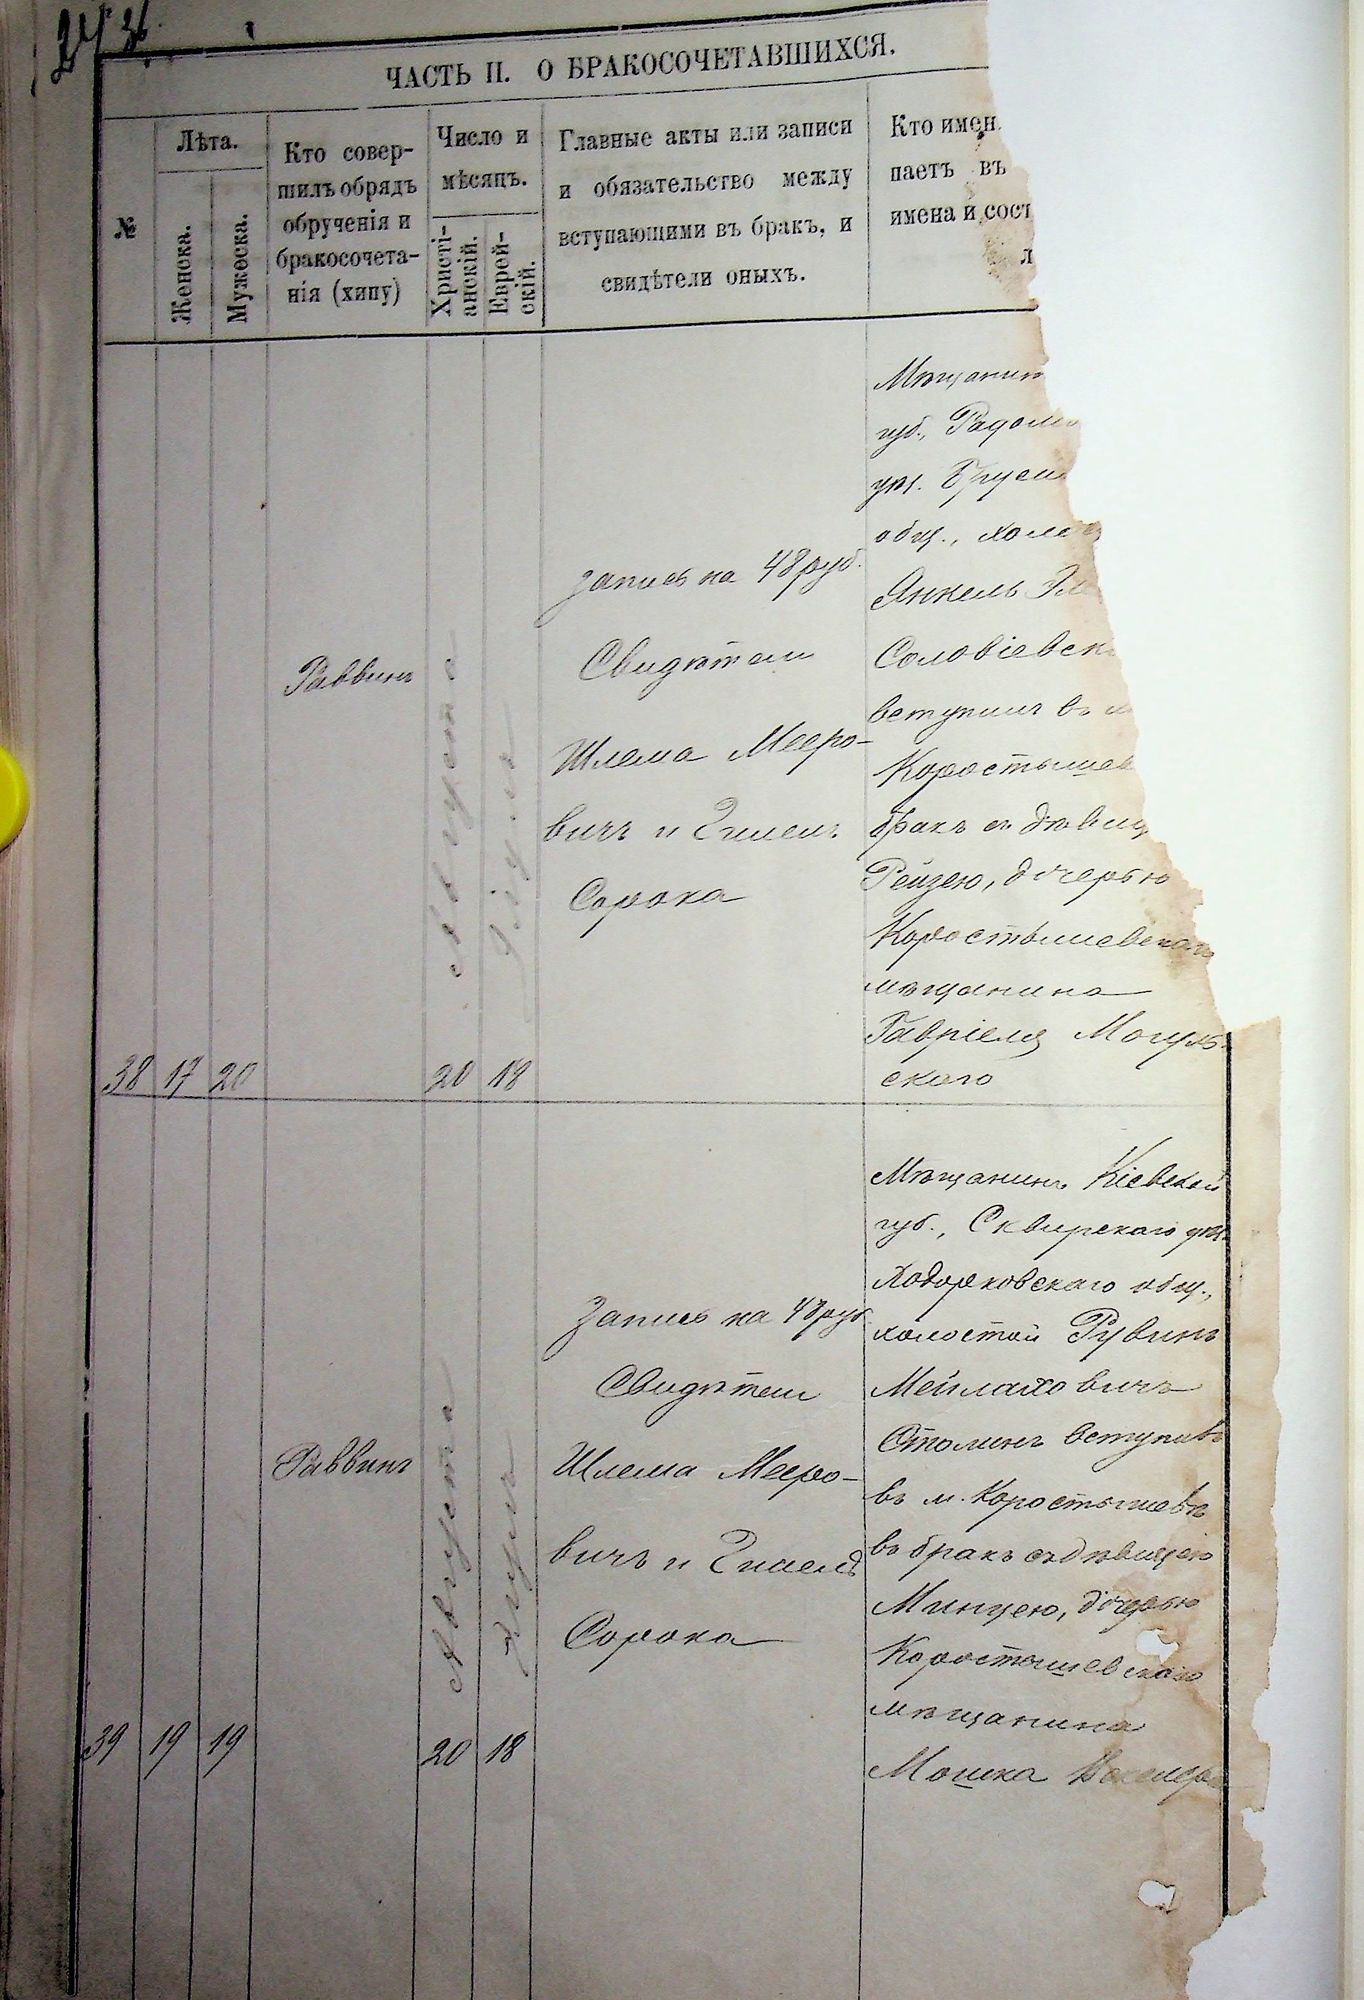 ЧАСТЬ II. О БРАКОСОЧЕТАВШИХСЯ.
№
Лѣта.
Женска.
Мужеска.
Кто совер-
шилъ обрядъ
обрученія и
бракосочета-
нія (хипу)
Число и
мѣсяцъ.
Христі-
анскій.
Еврей-
скій.
Главные акты или записи
и обязательство между
вступающими въ бракъ, и
свидѣтели оныхъ.
Кто имен
паетъ въ
имена и сост
38
17
20
Раввинъ
Августа
20
18
запись на 48 руб.
Свидѣтели
Шлема Мееро-
вичъ и
Сорока
Мѣщанин
губ., Радом
уѣз. Бруси
общ., холос
Янкель Эл
Соловіевск
вступилъ въ м
Коростышев
бракъ съ дѣвиц
Рейзею, дочерью
Коростышевскаго
мѣщанина
Гавріеля Могуль-
скаго
39
19
19
Раввинъ
Августа
20
18
Запись на 48 руб
Свидѣтели
Шлема Мееро-
вичъ и
Сорока
Мѣщанинъ Кіевской
губ., Сквирскаго уѣз.
Ходорковскаго общ.,
холостой Рувинъ
Мейлаховичъ
Столинъ вступивъ
въ м. Коростышевѣ
въ бракъ съ дѣвицею
Минцею, дочерью
Коростышевскаго
мѣщанина
Мошка